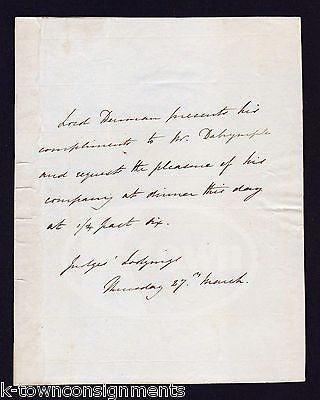 Lord Denman presents his
compliments to Mr. Dalrymple
and requests the pleasure of his
company at dinner this day
at 1/4 past six.
Judges' Lodgings
Thursday 27.th March.
k-townconsignments